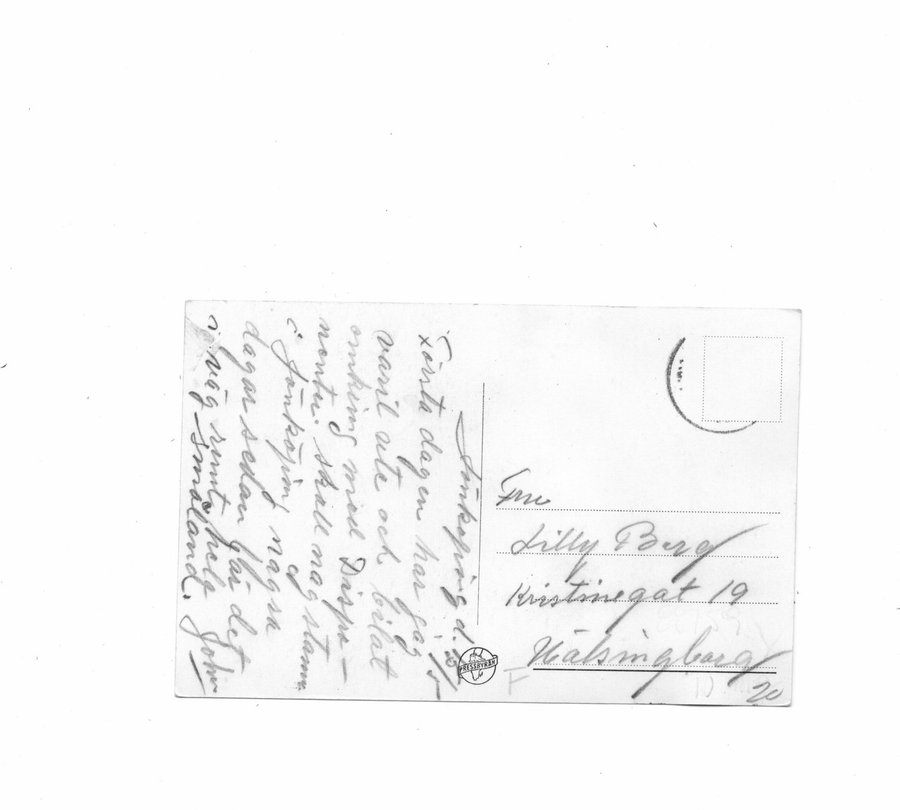 Jönköping d. 10/5
Första dagen har jag
varit ute och bilat
omkring med Dispo-
nentu. skall nog stanna
i Jönköping några
dagar sedan går det
iväg runt hela
Småland. John
Fru
Lilly Berg
Kristinegat 19
Hälsingborg
PRESSBYRÅN
F
20